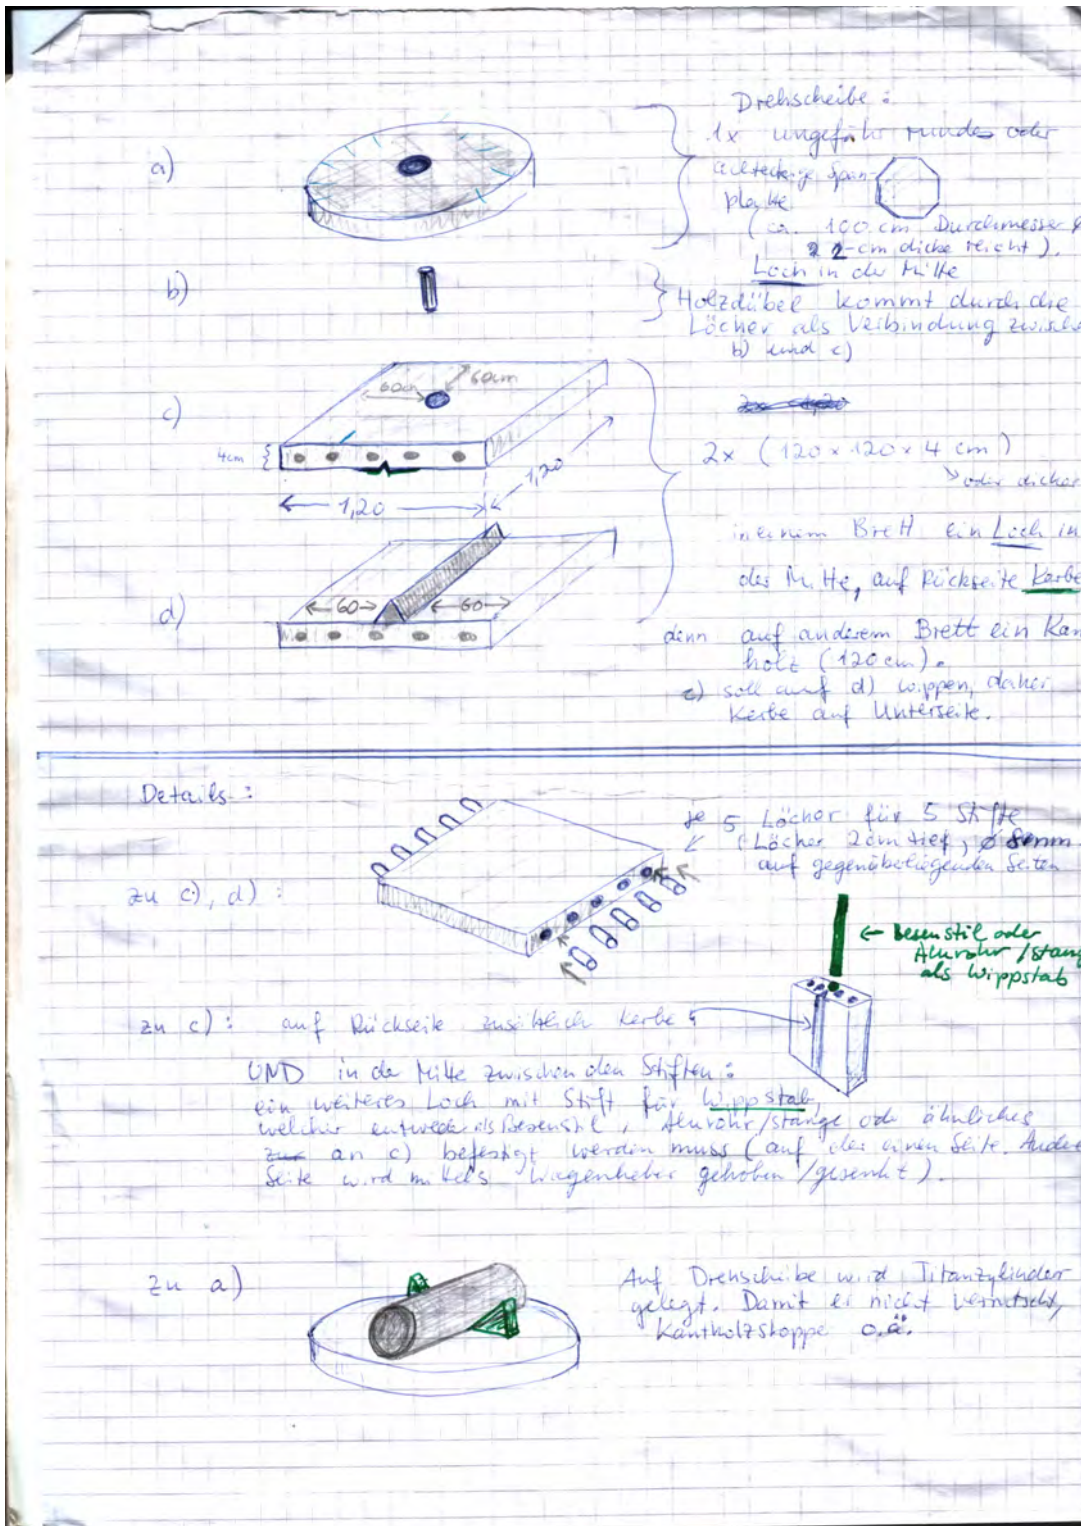 Drehscheibe :
a)
1x ungefähr rundes oder
achteckige Span-
platte
(ca. 100 cm Durchmesser &
2-cm dicke reicht).
Loch in der Mitte
b)
Holzdübel kommt durch die
Löcher als Verbindung zwische
b) und c)
60cm
60cm
c)
4cm
1,20
1,20
2x (120 x 120 x 4 cm)
oder dicker
in einem Brett ein Loch in
der Mitte, auf Rückseite Kerbe
d)
60
60
denn auf anderem Brett ein Kan
holz (120 cm).
c) soll auf d) wippen, daher
Kerbe auf Unterseite.
Details :
je 5 Löcher für 5 Stifte
(Löcher 2cm tief, ø 8mm
auf gegenüberliegenden Seiten
zu c), d) :
← Besenstil oder
Alurohr / stang
als Wippstab
zu c) : auf Rückseite zusätzlich Kerbe
UND in der Mitte zwischen den Stiften :
ein weiteres Loch mit Stift für Wippstab,
welcher entweder als Besenstil, Alurohr/stange oder ähnliches
an c) befestigt werden muss (auf der einen Seite. Andere
Seite wird mittels Wagenheber gehoben / gesenkt).
zu a)
Auf Drehscheibe wird Titanzylinder
gelegt. Damit er nicht verrutscht,
Kantholzstoppe o.ä.